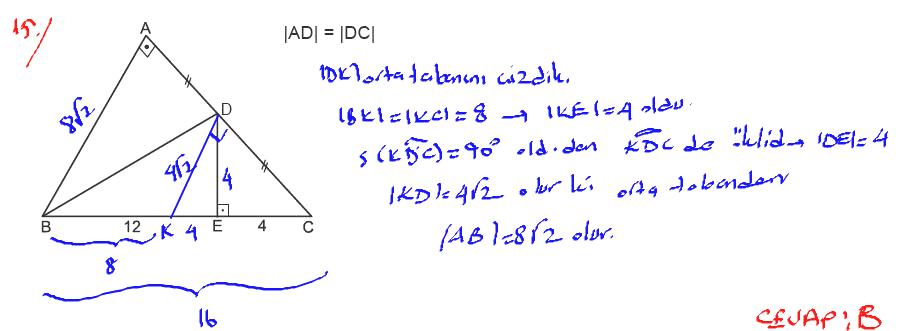 15.
A
|AD| = |DC|
|DK| orta tabanını çizdik.
|BK|=|KC|=8 → |KE|=4 oldu.
s(KDC)=90° old.dan KDC de öklid → |DE|=4
|KD|=4√2 olur ki orta tabandan
|AB|=8√2 olur.
8√2
D
4√2
4
B
12
K
4
E
4
C
8
16
CEVAP: B